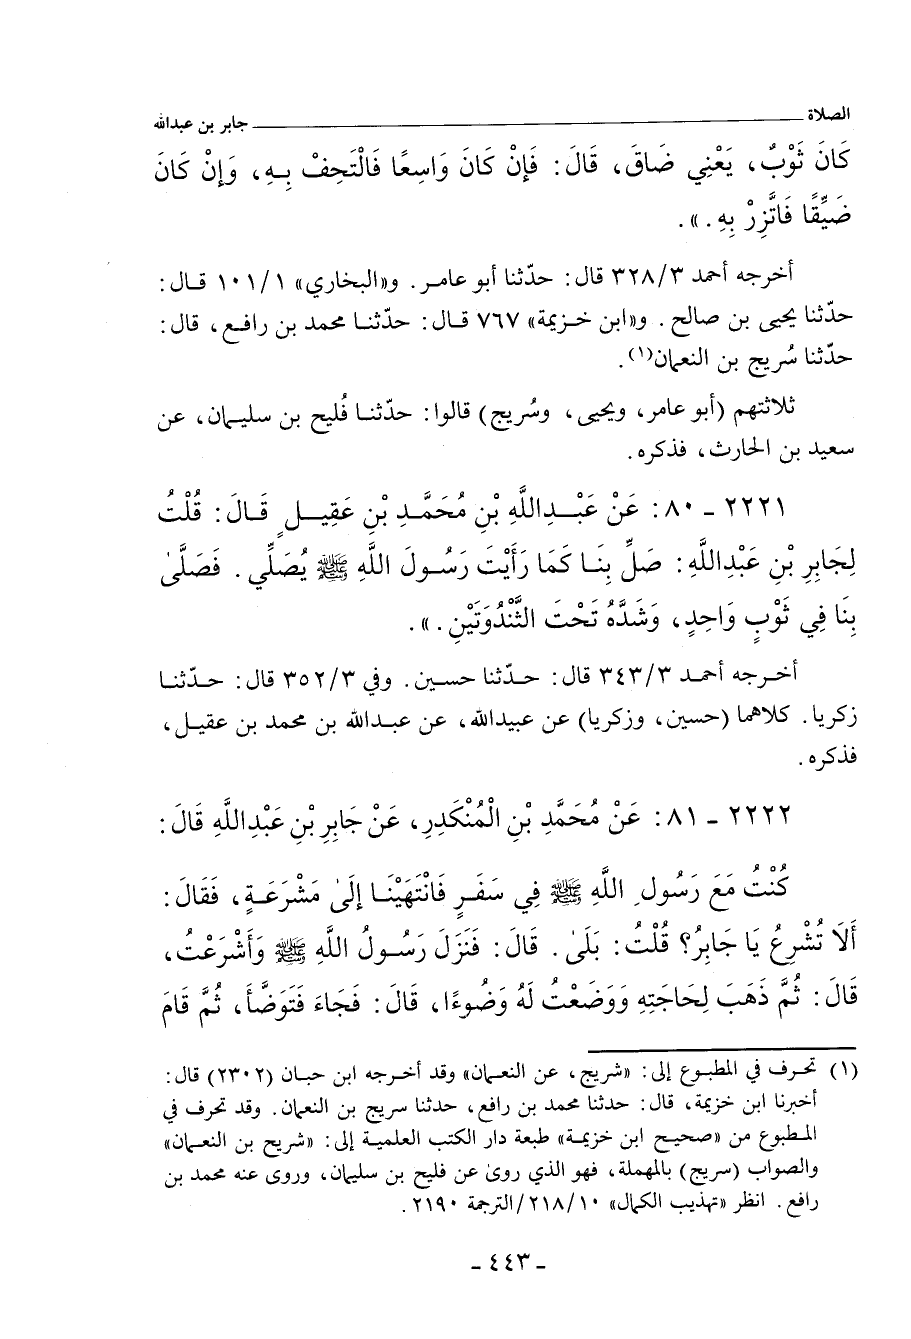 الصلاة ــــــ جابر بن عبدالله
كَانَ ثَوْبٌ، يَعْنِي ضَاقَ، قَالَ: فَإِنْ كَانَ وَاسِعًا فَالْتَحِفْ بِهِ، وَإِنْ كَانَ
ضَيِّقًا فَاتَّزِرْ بِهِ.».
أخرجه أحمد ٣٢٨/٣ قال: حدّثنا أبو عامر. و«البخاري» ١٠١/١ قال:
حدّثنا يحيى بن صالح. و«ابن خزيمة» ٧٦٧ قال: حدّثنا محمد بن رافع، قال:
حدّثنا سُريج بن النعمان(١).
ثلاثتهم (أبو عامر، ويحيى، وسُريج) قالوا: حدّثنا فُليح بن سليمان، عن
سعيد بن الحارث، فذكره.
٢٢٢١ - ٨٠: عَنْ عَبْدِاللَّهِ بْنِ مُحَمَّدِ بْنِ عَقِيلٍ قَالَ: قُلْتُ
لِجَابِرِ بْنِ عَبْدِاللَّهِ: صَلِّ بِنَا كَمَا رَأَيْتَ رَسُولَ اللَّهِ ﷺ يُصَلِّي. فَصَلَّىٰ
بِنَا فِي ثَوْبٍ وَاحِدٍ، وَشَدَّهُ تَحْتَ الثَّنْدُوَتَيْنِ.».
أخرجه أحمد ٣٤٣/٣ قال: حدّثنا حسين. وفي ٣٥٢/٣ قال: حدّثنا
زكريا. كلاهما (حسين، وزكريا) عن عبيدالله، عن عبدالله بن محمد بن عقيل،
فذكره.
٢٢٢٢ - ٨١: عَنْ مُحَمَّدِ بْنِ الْمُنْكَدِرِ، عَنْ جَابِرِ بْنِ عَبْدِاللَّهِ قَالَ:
كُنْتُ مَعَ رَسُولِ اللَّهِ ﷺ فِي سَفَرٍ فَانْتَهَيْنَا إِلَىٰ مَشْرَعَةٍ، فَقَالَ:
أَلَا تُشْرِعُ يَا جَابِرُ؟ قُلْتُ: بَلَىٰ. قَالَ: فَنَزَلَ رَسُولُ اللَّهِ ﷺ وَأَشْرَعْتُ،
قَالَ: ثُمَّ ذَهَبَ لِحَاجَتِهِ وَوَضَعْتُ لَهُ وَضُوءًا، قَالَ: فَجَاءَ فَتَوَضَّأَ، ثُمَّ قَامَ
(١) تحرف في المطبوع إلى: «شريج، عن النعمان» وقد أخرجه ابن حبان (٢٣٠٢) قال:
أخبرنا ابن خزيمة، قال: حدثنا محمد بن رافع، حدثنا سريج بن النعمان. وقد تحرف في
المطبوع من «صحيح ابن خزيمة» طبعة دار الكتب العلمية إلى: «شريح بن النعمان»
والصواب (سريج) بالمهملة، فهو الذي روىٰ عن فليح بن سليمان، وروى عنه محمد بن
رافع. انظر «تهذيب الكمال» ٢١٨/١٠/الترجمة ٢١٩٠.
- ٤٤٣ -